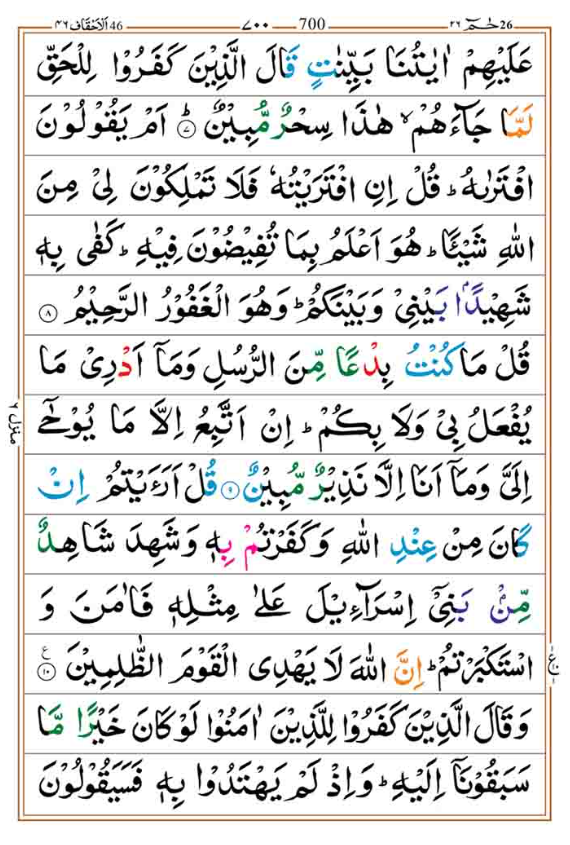 حٰمٓ 26 ٢٦ 700 ٧٠٠ اَلْاَحْقَاف 46 ٤٦
عَلَيْهِمْ اٰيٰتُنَا بَيِّنٰتٍ قَالَ الَّذِيْنَ كَفَرُوْا لِلْحَقِّ
لَمَّا جَآءَهُمْ ۙ هٰذَا سِحْرٌ مُّبِيْنٌ ؕ ۝٧ اَمْ يَقُوْلُوْنَ
افْتَرٰىهُ ؕ قُلْ اِنِ افْتَرَيْتُهٗ فَلَا تَمْلِكُوْنَ لِيْ مِنَ
اللهِ شَيْـًٔا ؕ هُوَ اَعْلَمُ بِمَا تُفِيْضُوْنَ فِيْهِ ؕ كَفٰى بِهٖ
شَهِيْدًۢا بَيْنِيْ وَبَيْنَكُمْ ؕ وَهُوَ الْغَفُوْرُ الرَّحِيْمُ ۝٨
قُلْ مَا كُنْتُ بِدْعًا مِّنَ الرُّسُلِ وَمَآ اَدْرِيْ مَا
يُفْعَلُ بِيْ وَلَا بِكُمْ ؕ اِنْ اَتَّبِعُ اِلَّا مَا يُوْحٰٓى
اِلَيَّ وَمَآ اَنَا اِلَّا نَذِيْرٌ مُّبِيْنٌ ۝٩ قُلْ اَرَءَيْتُمْ اِنْ
كَانَ مِنْ عِنْدِ اللهِ وَكَفَرْتُمْ بِهٖ وَشَهِدَ شَاهِدٌ
مِّنْۢ بَنِيْٓ اِسْرَآءِيْلَ عَلٰى مِثْلِهٖ فَاٰمَنَ وَ
اسْتَكْبَرْتُمْ ؕ اِنَّ اللهَ لَا يَهْدِى الْقَوْمَ الظّٰلِمِيْنَ ۝١٠ ع
وَقَالَ الَّذِيْنَ كَفَرُوْا لِلَّذِيْنَ اٰمَنُوْا لَوْ كَانَ خَيْرًا مَّا
سَبَقُوْنَآ اِلَيْهِ ؕ وَاِذْ لَمْ يَهْتَدُوْا بِهٖ فَسَيَقُوْلُوْنَ
منزل ٦